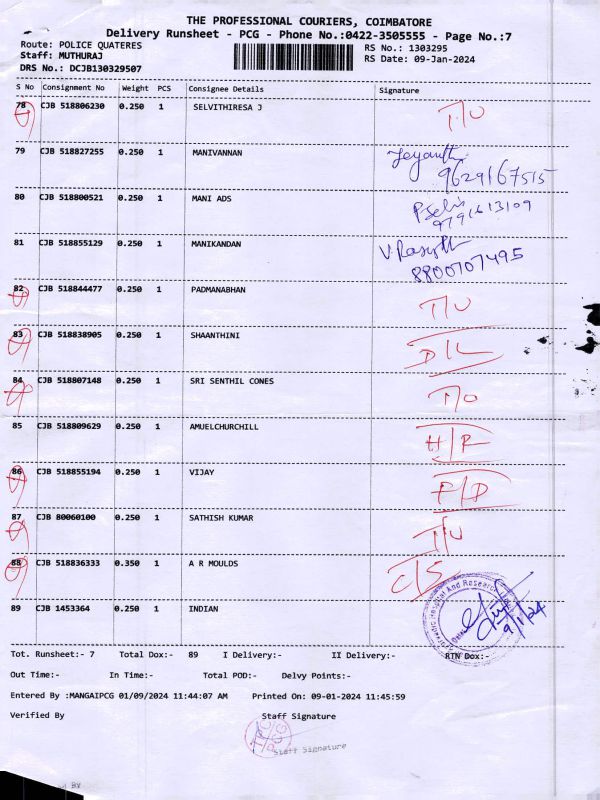 THE PROFESSIONAL COURIERS, COIMBATORE
Delivery Runsheet - PCG - Phone No.:0422-3505555 - Page No.:7
Route: POLICE QUATERES RS No.: 1303295
Staff: MUTHURAJ RS Date: 09-Jan-2024
DRS No.: DCJB130329507
S No Consignment No Weight PCS Consignee Details Signature
78 CJB 518806230 0.250 1 SELVITHIRESA J
79 CJB 518827255 0.250 1 MANIVANNAN
9629167515
80 CJB 518800521 0.250 1 MANI ADS
9791613109
81 CJB 518855129 0.250 1 MANIKANDAN
8800707495
82 CJB 518844477 0.250 1 PADMANABHAN
83 CJB 518838905 0.250 1 SHAANTHINI D/L
84 CJB 518807148 0.250 1 SRI SENTHIL CONES
85 CJB 518809629 0.250 1 AMUELCHURCHILL H/R
86 CJB 518855194 0.250 1 VIJAY P/D
87 CJB 80060100 0.250 1 SATHISH KUMAR
88 CJB 518836333 0.350 1 A R MOULDS C/S
89 CJB 1453364 0.250 1 INDIAN
Hospital And Research
9/1/24
Tot. Runsheet:- 7 Total Dox:- 89 I Delivery:- II Delivery:- RTN Dox:-
Out Time:- In Time:- Total POD:- Delvy Points:-
Entered By :MANGAIPCG 01/09/2024 11:44:07 AM Printed On: 09-01-2024 11:45:59
Verified By Staff Signature
TPC
PCG
Staff Signature
By